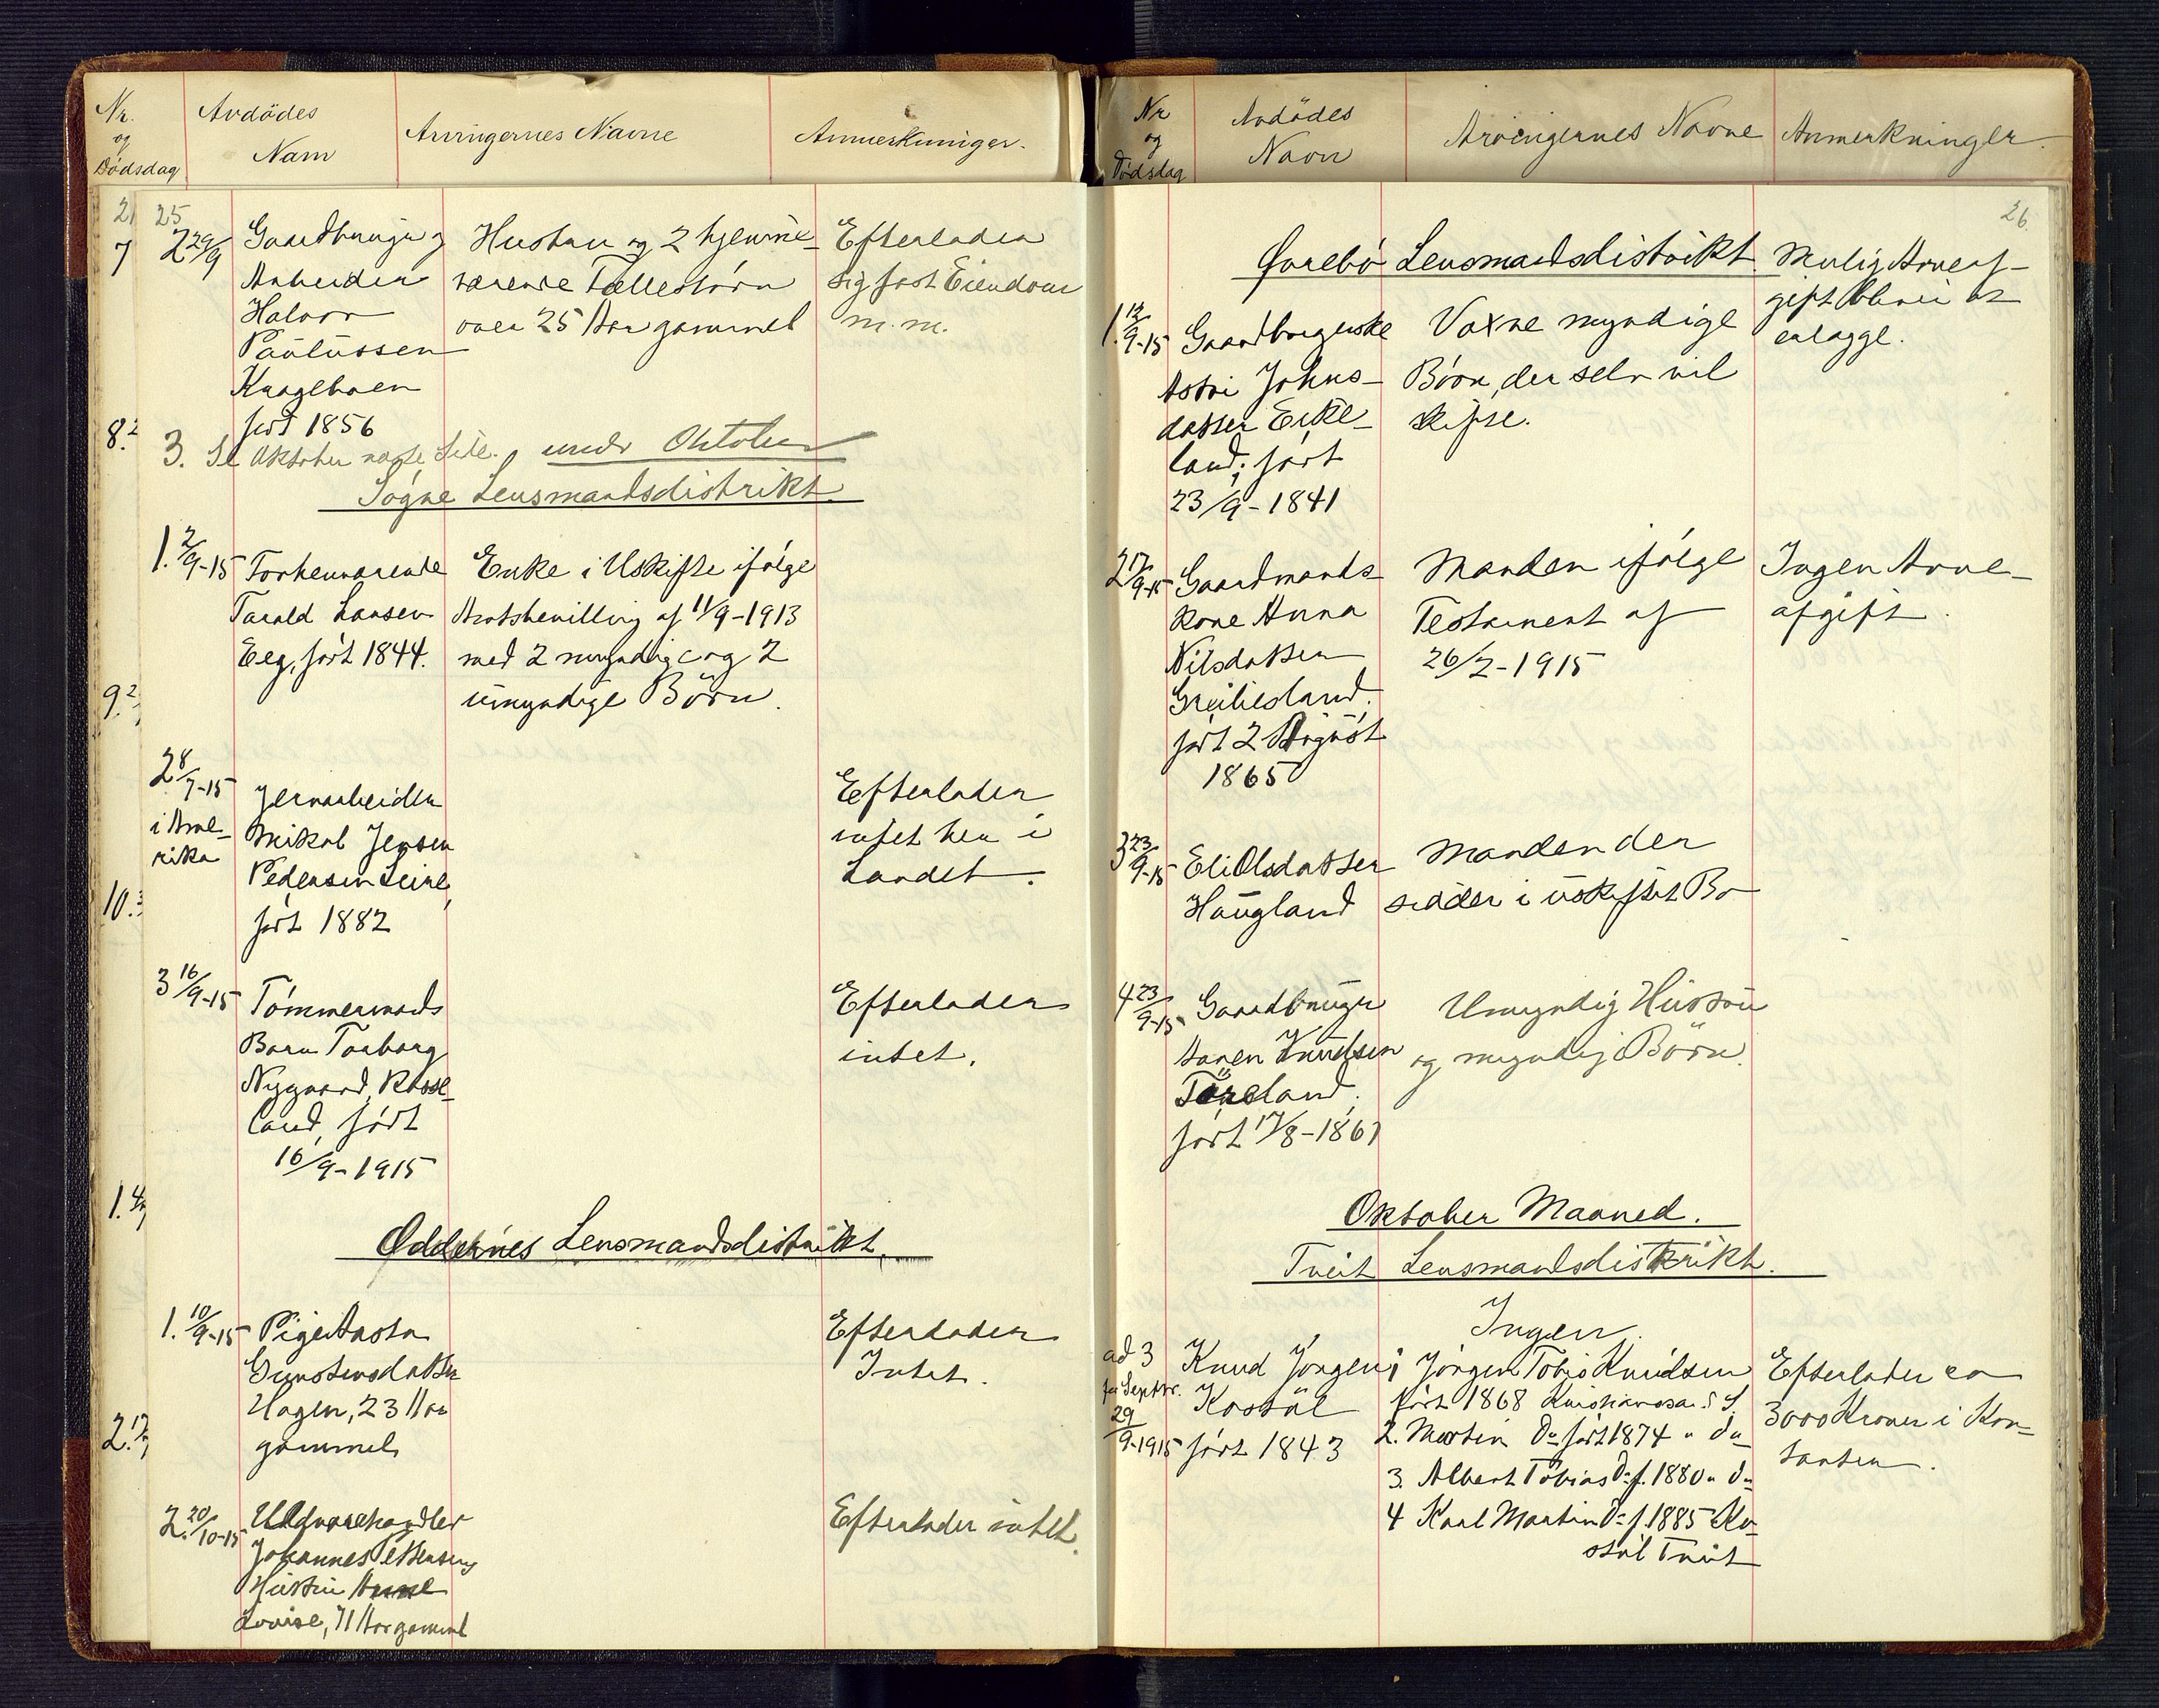 Nr. og Dödsdag
Avdödes Navn
Arvingernes Navne
Anmerkninger.
25
2 29/9
Gaardbruger og
Arbeider
Halvor
Paulussen
Krageboen
född 1856
Hustru og 2 hjemme-
værende Fællesbørn
over 25 Aar gammel
Efterlader
sig fast Eiendom
m.m.
3. Se Oktober næste Side. under Oktober
Søgne Lensmandsdistrikt
1. 2/9-15
Forhenværende
Tarald Larsen
Eeg, født 1844.
Enke i Uskifte ifølge
Amtsbevilling af 11/9-1913
med 2 myndige og 2
umyndige Börn.
2 8/7-15
i Ame-
rika
Jernarbeider
Mikal Jensen
Pedersen Leire,
født 1882
Efterlader
intet her i
Landet.
3 16/9-15
Tømmermands
Barn Torborg
Nygaard, Rosse-
land, født
16/9-1915
Efterlader
intet.
Oddernes Lensmandsdistrikt.
1. 10/9-15
Pige Aasta
Gunstensdatter
Hagen, 23 Aar
gammel
Efterlader
Intet.
2. 20/10-15
Uldvarehandler
Johannes Pettersens
Hustru
Lovise, 71 Aar gammel
Efterlader intet.
7
8.
9.
10.
1.
2.
Nr og Dødsdag
Avdödes Navn
Arvingernes Navne
Anmerkninger.
26
Øvrebö Lensmandsdistrikt
1. 12/9-15
Gaardbrugerske
Astri Johns-
datter Eike-
land; født
23/9-1841
Voxne myndige
Börn, der selv vil
skifte.
Mulig Arveaf-
gift blir at
erlægge.
2 17/9-15
Gaardmands
Kone Anna
Nilsdatter
Greibesland,
født 2 August
1865
Manden ifølge
Testament af
26/2-1915
Ingen Arve-
afgift.
3 23/9-15
Eli Olsdatter
Haugland
Manden der
sidder i uskiftet Bo
4 23/9-15
Gaardbruger
Aanen Knudsen
født 17/8-1861
Umyndig Hustru
og myndig Börn.
Oktober Maaned.
Tveit Lensmandsdistrikt.
Ingen.
ad 3
for Septbr.
29/9-1915
Knud Jörgen
Kostöl
født 1843
1 Jörgen Tobias Knudsen
født 1868 Kristianssand S.
2. Martin Do født 1874 " do
3. Albert Tobias Do f. 1880 " do
4 Karl Martin Do f. 1885 Ko-
stöl Tveit
Efterlader ca
3000 Kroner i Kon-
tanter.